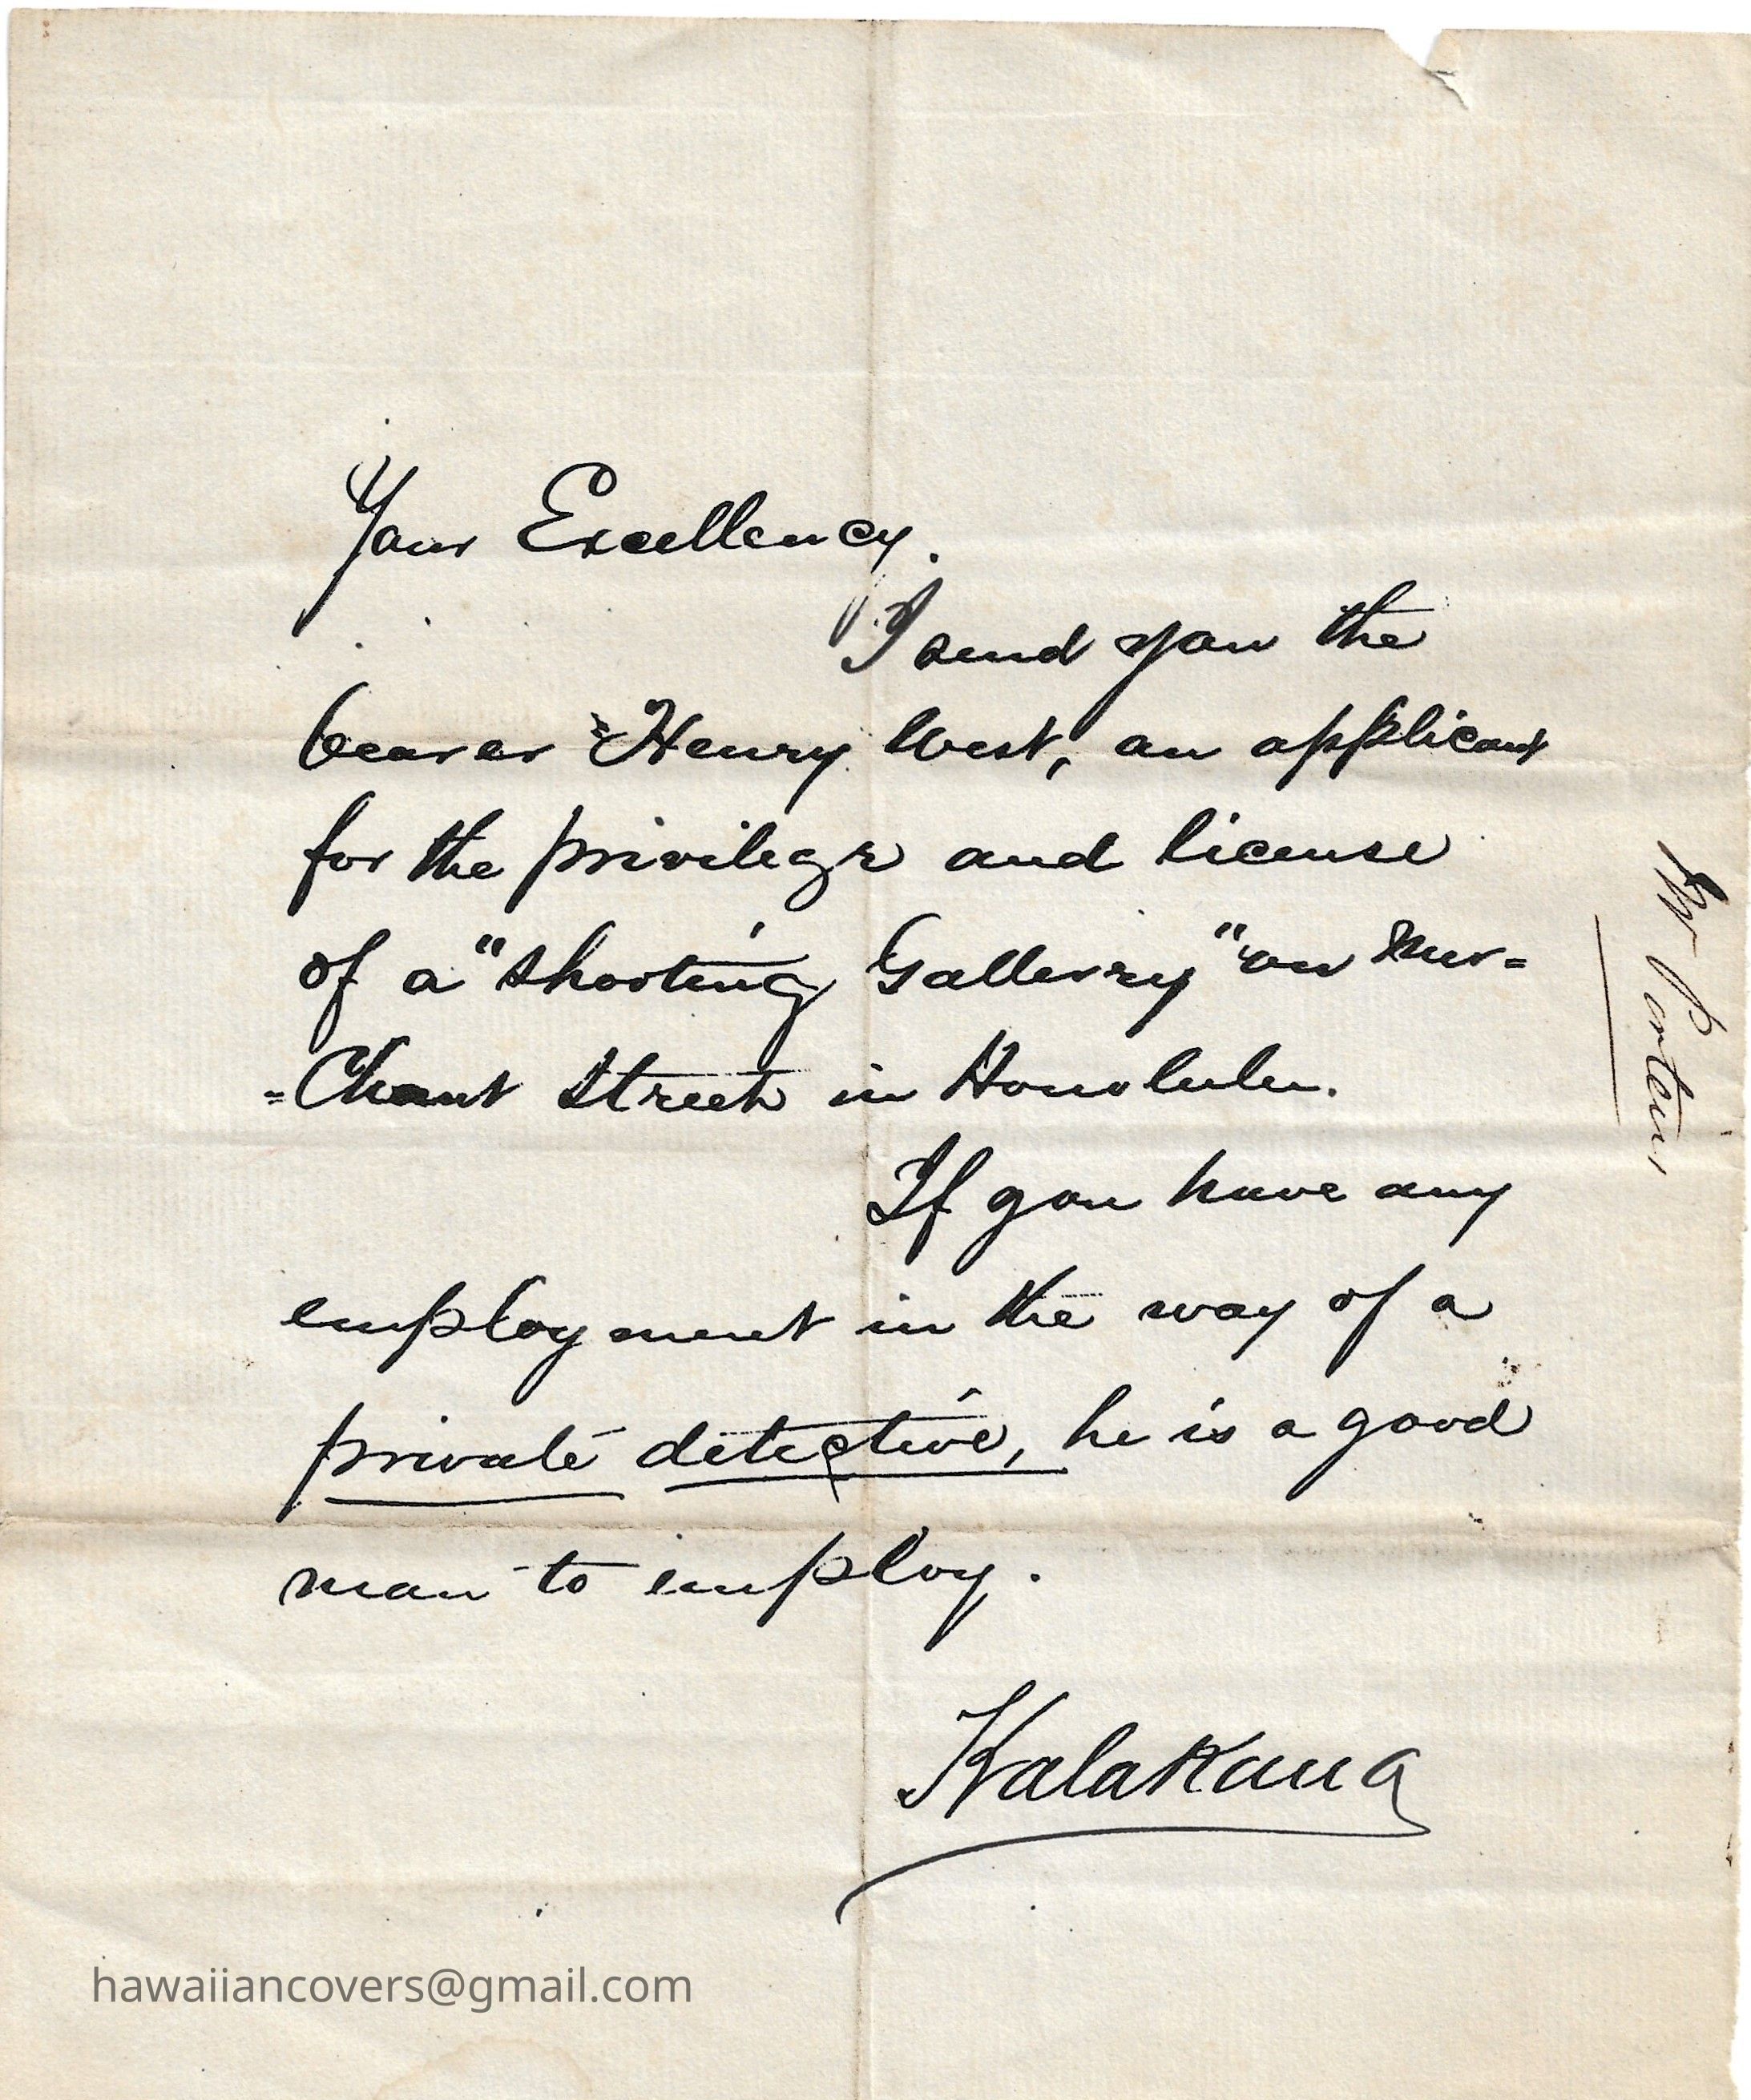 Your Excellency.
I send you the
bearer Henry West, an applicant
for the privilege and license
of a "Shooting Gallerry" on Mer=
=Chant Street in Honolulu.
If you have any
employment in the way of a
private detective, he is a good
man to employ.
Kalakaua
hawaiiancovers@gmail.com